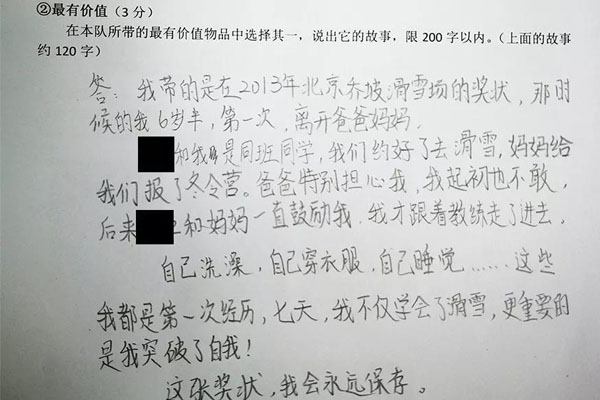 ②最有价值（3 分）
在本队所带的最有价值物品中选择其一，说出它的故事，限 200 字以内。（上面的故事
约 120 字）
答：我带的是在2013年北京乔坡滑雪场的奖状，那时
候的我6岁半，第一次，离开爸爸妈妈.
和我是同班同学，我们约好了去滑雪，妈妈给
我们报了冬令营。爸爸特别担心我，我起初也不敢，
后来 和妈妈一直鼓励我.我才跟着教练走了进去，
自己洗澡，自己穿衣服，自己睡觉……这些
我都是第一次经历，七天，我不仅学会了滑雪，更重要的
是我突破了自我！
这张奖状，我会永远保存。